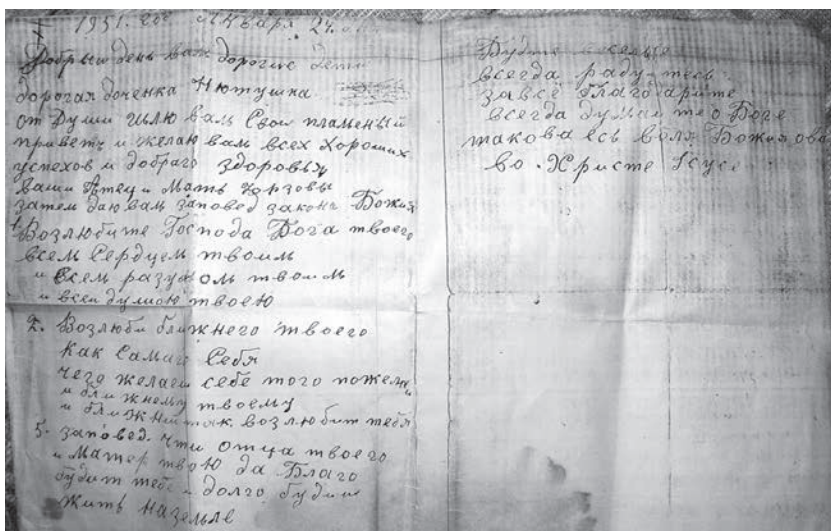 1951. год января 24.ого
Добрый день вам дорогие дети
дорогая доченка Нютушка
от Души шлю вам Свои пламеный
приветъ и желаю вам всех Хороших
успехов и добраго здоровья
ваши Отец и Мать
затем даю вам заповед закона Божия
1 Возлюбите Господа Бога твоего
всем Сердцем твоим
и всем разумом твоим
и всей душою твоею
2. Возлюби ближнего твоего
Как Самаго Себя
чего желаеш себе того пожелай
и ближнему твоему
и ближний так возлюбит тебя
5. заповед. чти отца твоего
и Матер твою да Благо
будит тебе и долго будиш
жить на земле
Будте веселые
всегда радуйтесь
за всё благодарите
всегда думайте о Боге
такова есь воля Божия
во Христе Iсусе